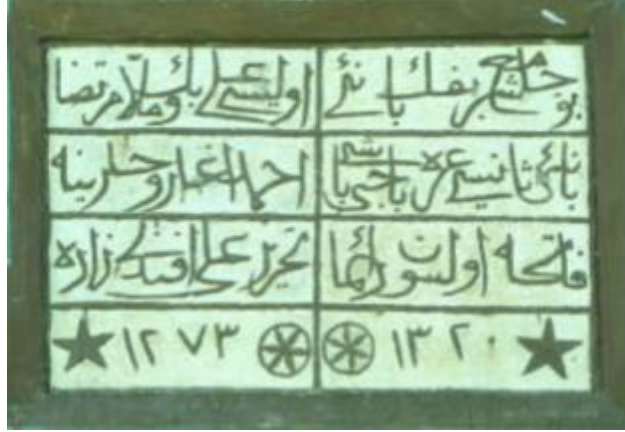 بو جامع شريفك بانئ اوليسى على بك وملا مرتضا
بانئ ثانيسى باجى باشى احمد اغا روحلرينه
فاتحه اولسون دائما تحرير على افندى زاده
١٣٢٠ ١٢٧٣